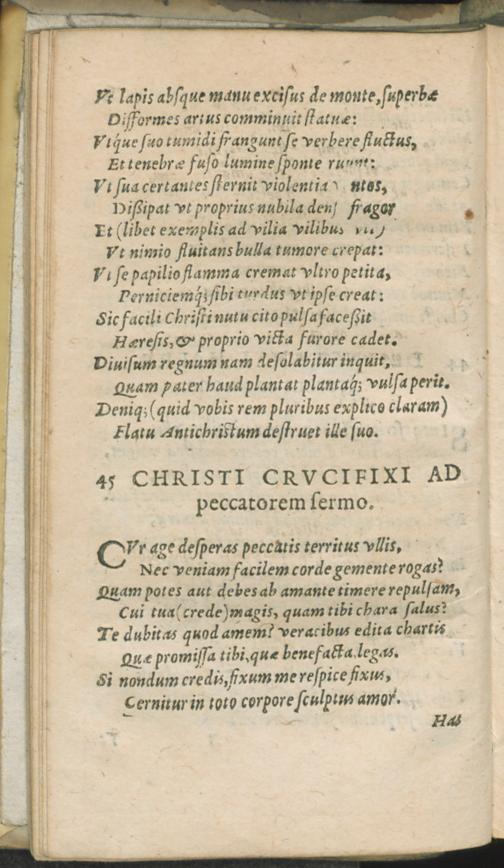 Vt lapis absque manu excisus de monte, superbæ
Difformes artus comminuit statuæ:
Vtq́ue suo tumidi frangunt se verbere fluctus,
Et tenebræ fuso lumine sponte
Vt sua certantes sternit violentia
Dißipat vt proprius nubila fragor
Et (libet exemplis ad vilia vilibus
Vt nimio fluitans bulla tumore crepat:
Vt se papilio flamma cremat vltro petita,
Perniciemq́; sibi turdus vt ipse creat:
Sic facili Christi nutu cito pulsa faceßit
Hæresis, & proprio victa furore cadet.
Diuisum regnum nam desolabitur inquit,
Quam pater haud plantat plantaq́; vulsa perit.
Deniq; (quid vobis rem pluribus explico claram)
Flatu Antichristum destruet ille suo.
45 CHRISTI CRVCIFIXI AD
peccatorem sermo.
CVr age desperas peccatis territus vllis,
Nec veniam facilem corde gemente rogas?
Quam potes aut debes ab amante timere repulsam,
Cui tua (crede) magis, quam tibi chara salus?
Te dubitas quod amem? veracibus edita chartis
Quæ promissa tibi, quæ benefacta legas.
Si nondum credis, fixum me respice fixus,
Cernitur in toto corpore sculptus amor.
Has